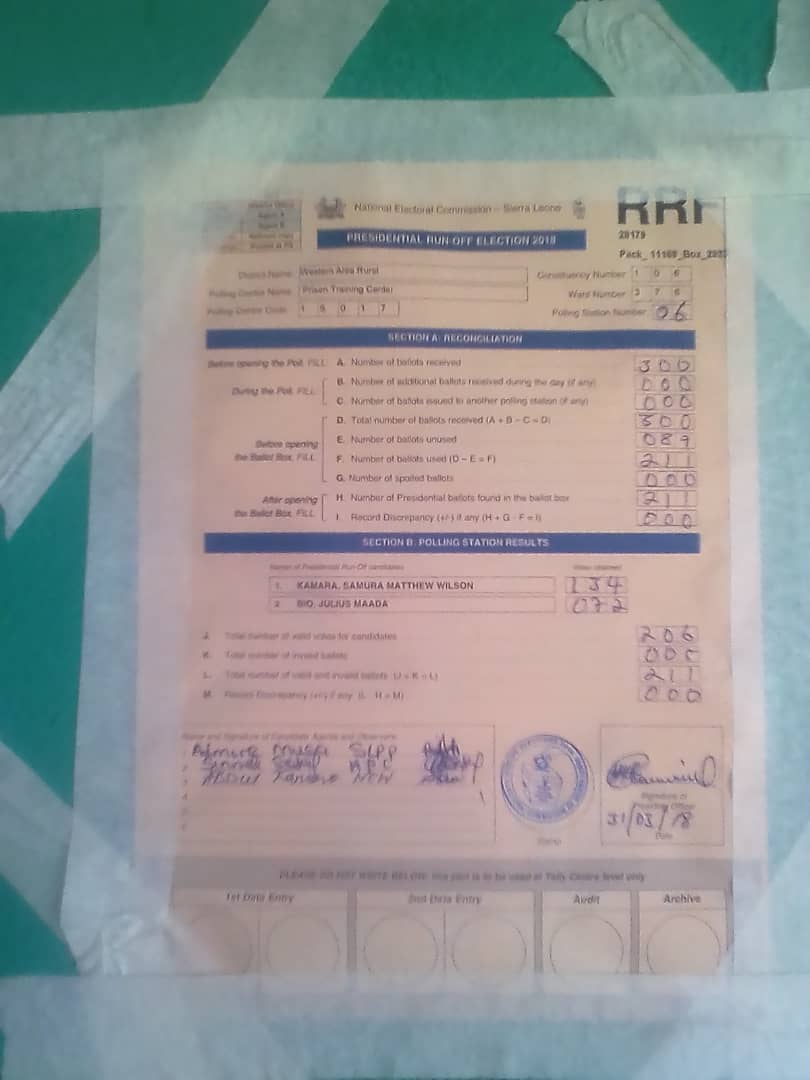 National Electoral Commission – Sierra Leone
RRF
PRESIDENTIAL RUN-OFF ELECTION 2018
28179
Pack_ 11168_Box_
District Name Western Area Rural
Constituency Number 1 0 6
Polling Centre Name Prison Training Center
Ward Number 3 7 6
Polling Centre Code 1 5 0 1 7
Polling Station Number 06
SECTION A: RECONCILIATION
Before opening the Poll, FILL: A. Number of ballots received 300
During the Poll, FILL:
B. Number of additional ballots received during the day (if any) 000
C. Number of ballots issued to another polling station (if any) 000
D. Total number of ballots received (A + B - C = D) 300
Before opening the Ballot Box, FILL:
E. Number of ballots unused 089
F. Number of ballots used (D – E = F) 211
G. Number of spoiled ballots 000
After opening the Ballot Box, FILL:
H. Number of Presidential ballots found in the ballot box 211
I. Record Discrepancy (+/-) if any (H + G - F = I) 000
SECTION B: POLLING STATION RESULTS
Name of Presidential Run-Off candidates
1. KAMARA, SAMURA MATTHEW WILSON 134
2. BIO, JULIUS MAADA 072
J. Total number of valid votes for candidates 206
K. Total number of invalid ballots
L. Total number of valid and invalid ballots (J + K = L) 211
M. Record Discrepancy (+/-) if any (L - H = M) 000
Name and Signature of Candidate Agents and Observers
1 SLPP
2 APC
3 NEW
4
5
6
Signature of
Presiding Officer
31/03/18
Date
Stamp
PLEASE DO NOT WRITE BELOW, this part is to be used at Tally Centre level only
1st Data Entry
2nd Data Entry
Audit
Archive